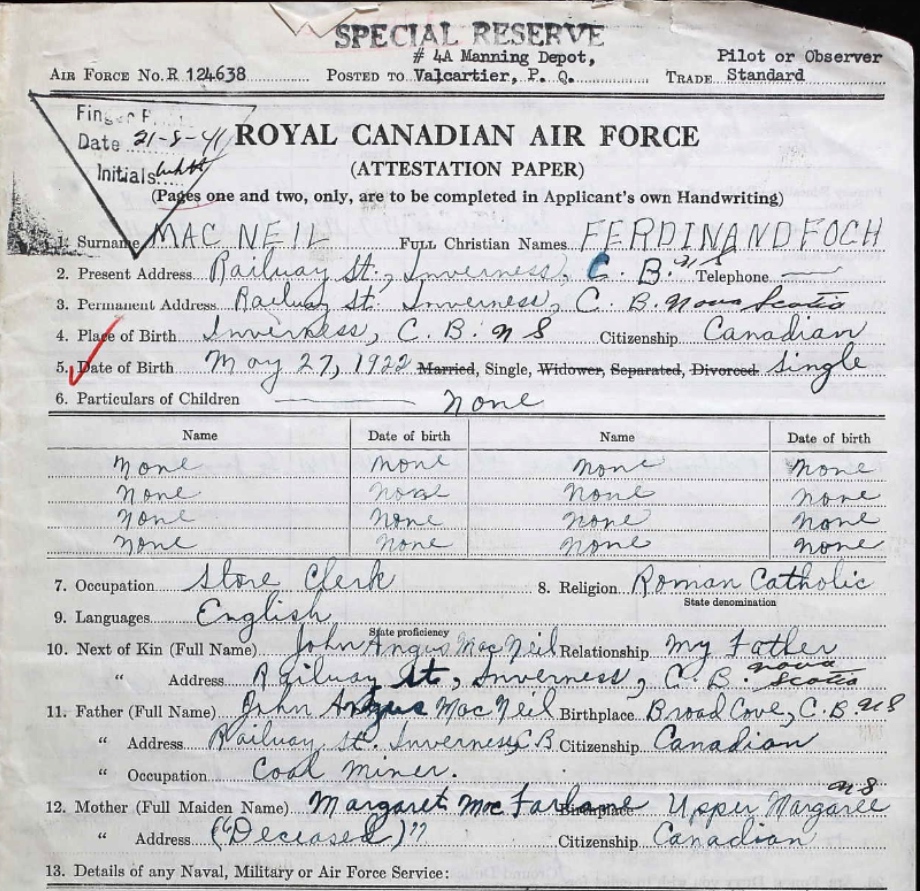 SPECIAL RESERVE
# 4A Manning Depot, Pilot or Observer
AIR FORCE NO. R 124638 POSTED TO Valcartier, P. Q. TRADE Standard
Finger P
Date 21-8-41 ROYAL CANADIAN AIR FORCE
Initials (ATTESTATION PAPER)
(Pages one and two, only, are to be completed in Applicant's own Handwriting)
1. Surname MAC NEIL FULL Christian Names FERDINAND FOCH
2. Present Address Railway St., Inverness, C. B. NS Telephone —
3. Permanent Address Railway St. Inverness, C. B. Nova Scotia
4. Place of Birth Inverness, C. B. NS Citizenship Canadian
5. Date of Birth May 27, 1922 Married, Single, Widower, Separated, Divorced. Single
6. Particulars of Children — None
Name Date of birth Name Date of birth
None None None None
None None None None
None None None None
None None None None
7. Occupation Store Clerk 8. Religion Roman Catholic
State denomination
9. Languages English
State proficiency
10. Next of Kin (Full Name) John Angus MacNeil Relationship My Father
" Address Railway St, Inverness, C. B. Nova Scotia
11. Father (Full Name) John Angus MacNeil Birthplace Broad Cove, C.B. NS
" Address Railway St. Inverness C.B Citizenship Canadian
" Occupation Coal Miner.
12. Mother (Full Maiden Name) Margaret MacFarlane Birthplace Upper Margaree NS
" Address ("Deceased)" Citizenship Canadian
13. Details of any Naval, Military or Air Force Service: